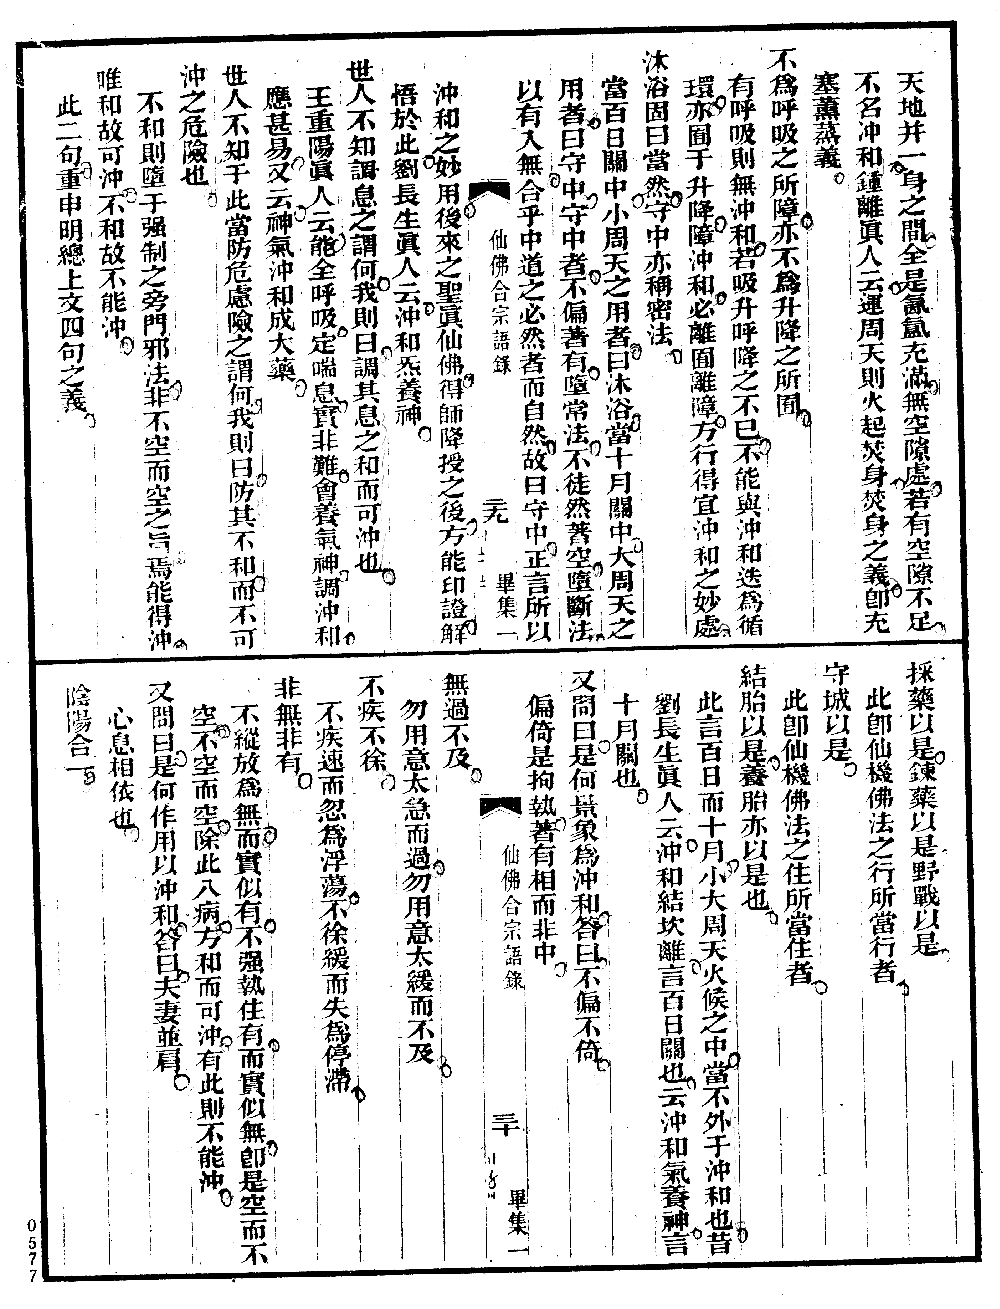 天地并一身之間全是氤氳充滿無空隙處若有空隙不足
不名冲和鍾離眞人云運周天則火起焚身焚身之義卽充
塞薰蒸義
不爲呼吸之所障亦不爲升降之所囿
有呼吸則無冲和若吸升呼降之不已不能與冲和迭爲循
環亦囿于升降障冲和必離囿離障方行得宜冲和之妙處
沐浴固曰當然守中亦稱密法
當百日關中小周天之用者曰沐浴當十月關中大周天之
用者曰守中守中者不偏著有墮常法不徒然著空墮斷法
以有入無合乎中道之必然者而自然故曰守中正言所以
仙佛合宗語錄
二九
畢集一
冲和之妙用後來之聖眞仙佛得師降授之後方能印證解
悟於此劉長生眞人云冲和炁養神
世人不知調息之謂何我則曰調其息之和而可冲也
王重陽眞人云能全呼吸定喘息實非難會養氣神調沖和
應甚易又云神氣沖和成大藥
世人不知于此當防危慮險之謂何我則曰防其不和而不可
沖之危險也
不和則墮于强制之旁門邪法非不空而空之旨焉能得沖
唯和故可沖不和故不能沖
此二句重申明總上文四句之義
採藥以是鍊藥以是野戰以是
此卽仙機佛法之行所當行者
守城以是
此卽仙機佛法之住所當住者
結胎以是養胎亦以是也
此言百日而十月小大周天火候之中當不外于沖和也昔
劉長生眞人云沖和結坎離言百日關也云沖和氣養神言
十月關也
又問曰是何景象爲沖和答曰不偏不倚
偏倚是拘執著有相而非中
仙佛合宗語錄
三十
畢集一
無過不及
勿用意太急而過勿用意太緩而不及
不疾不徐
不疾速而忽爲浮蕩不徐緩而失爲停滯
非無非有
不縱放爲無而實似有不强執住有而實似無卽是空而不
空不空而空除此八病方和而可沖有此則不能沖
又問曰是何作用以沖和答曰夫妻並肩
心息相依也
陰陽合一
0577